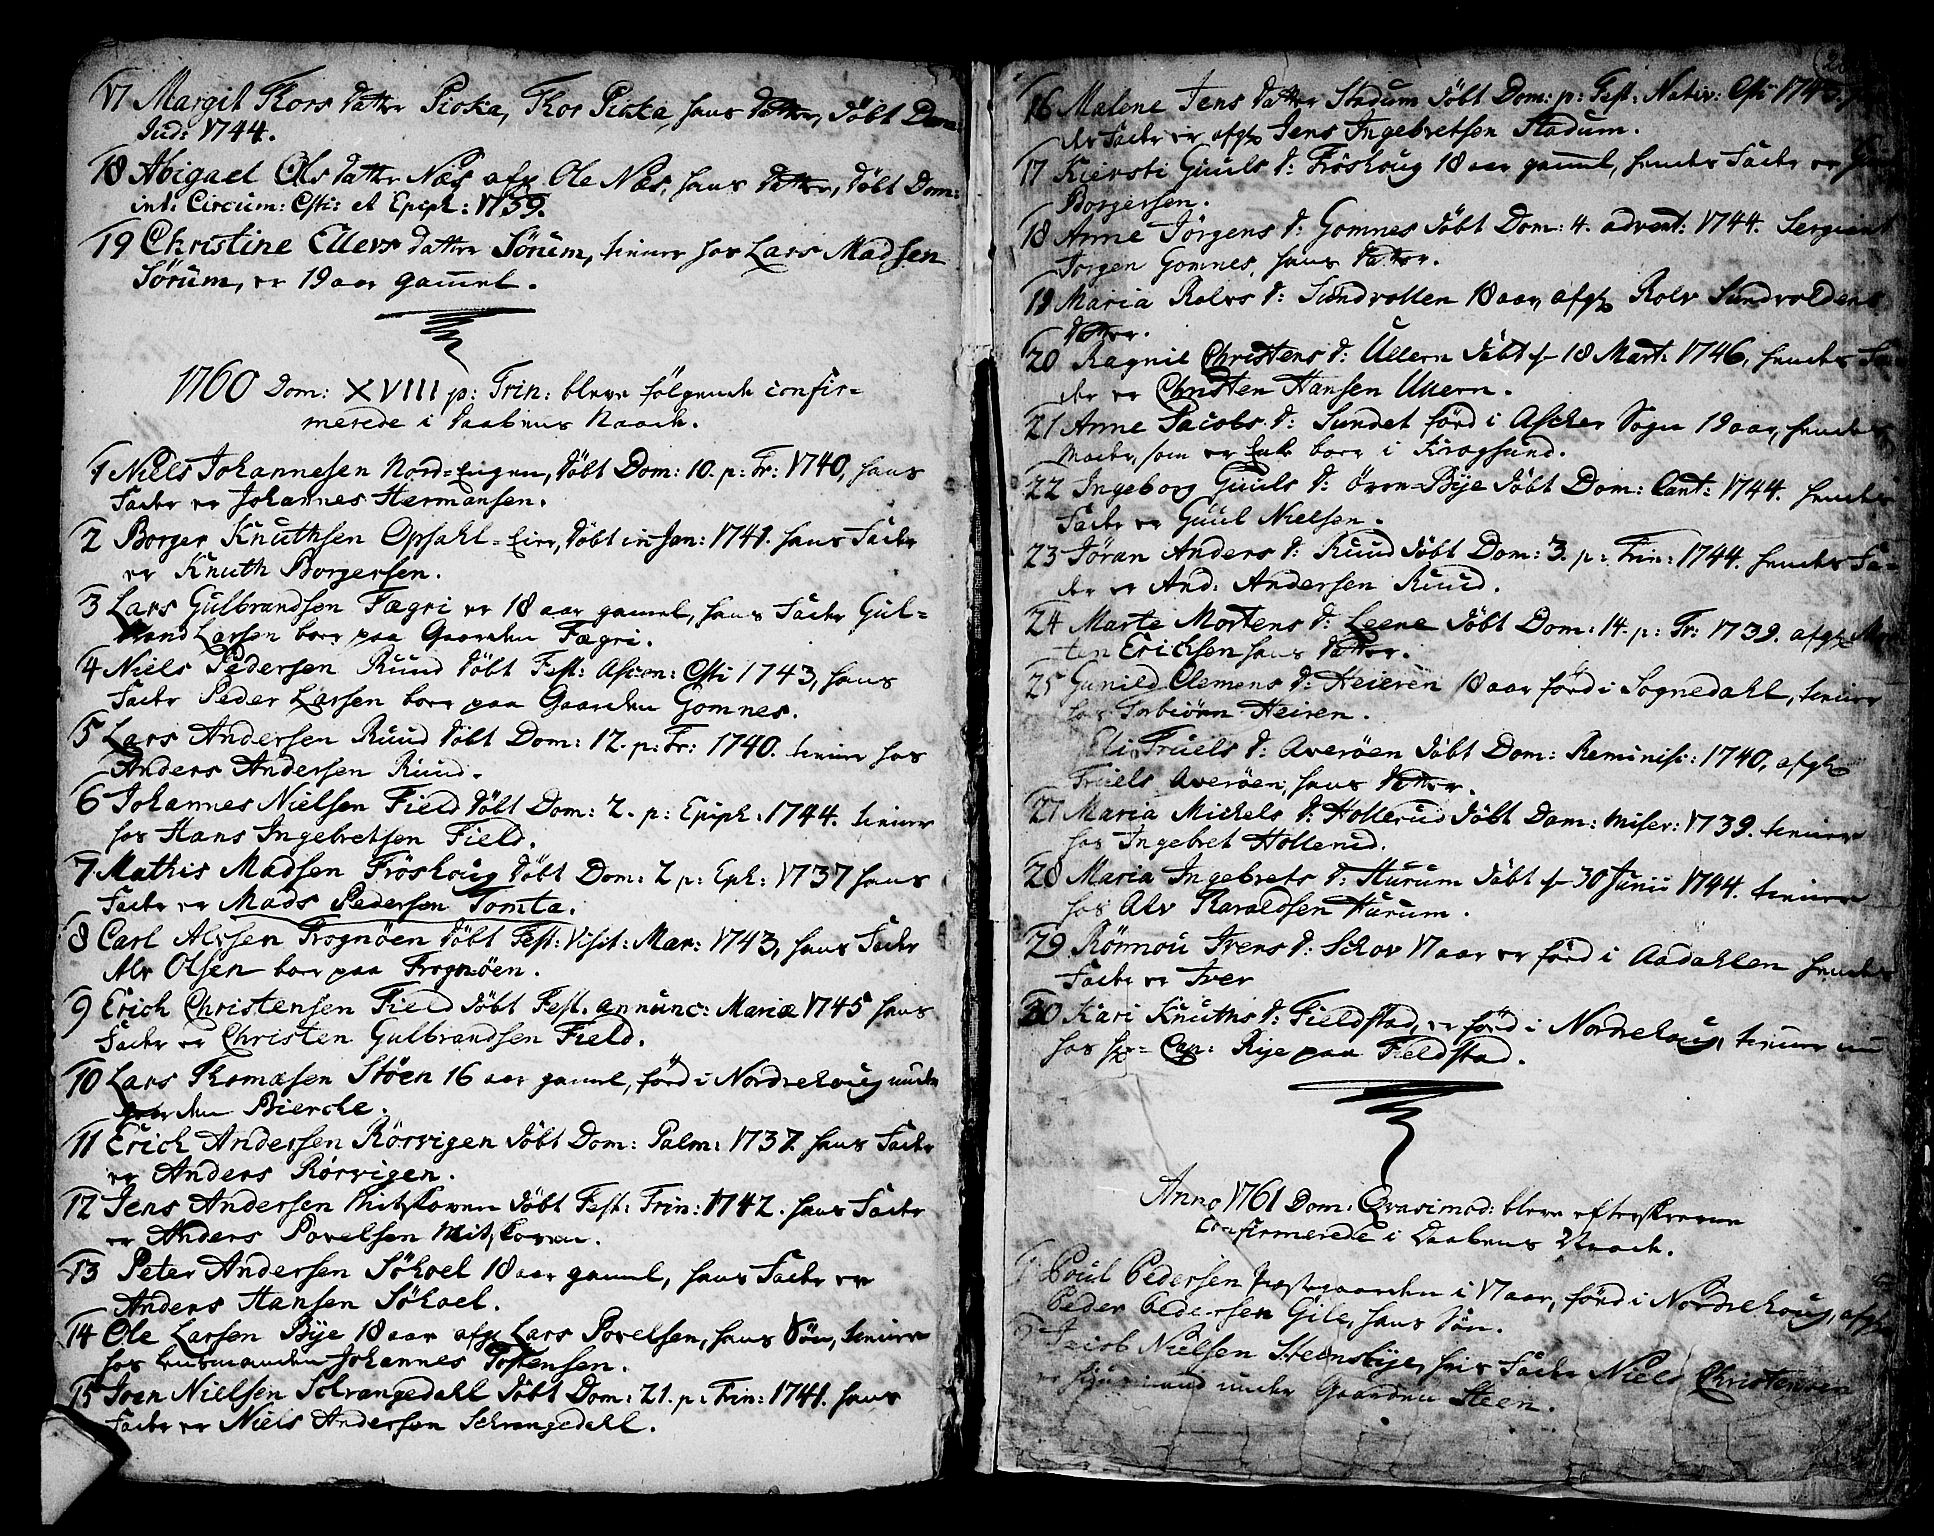 17 Margit Thors datter Pioka, Thor Pioka, hans datter, döbt Dom:
Jud: 1744.
18 Abigael Ols datter Næs afg: Ole Næs, hans datter, döbt Dom:
int: Circum: Csti: et Epiph: 1739.
19 Christine Ellevs datter Sörum, tiener hos Lars Madsen
Sörum, er 19 aar gammel.
1760 Dom: XVIII p: Trin: bleve fölgende confir-
merede i Daabens Naade.
1 Niels Johannesen Nord-Engen, döbt Dom: 10. p: Tr: 1740, hans
Fader er Johannes Hermansen.
2 Borger Knuthsen Opsahl-Eier, döbt in Jan: 1741. hans Fader
er Knuth Borgersen.
3 Lars Gulbrandsen Fægri er 18 aar gamel, hans Fader Gul-
brand Larsen boer paa Gaarden Fægri.
4 Niels Pedersen Ruud döbt Fest: Ascen: Csti 1743, hans
Fader Peder Larsen boer paa Gaarden Gomnes.
5 Lars Andersen Ruud döbt Dom: 12. p: Tr: 1740. tiener hos
Anders Andersen Ruud.
6 Johannes Nielsen Field döbt Dom: 2. p: Epiph: 1744. tiener
hos Hans Ingebretsen Field.
7 Mathis Madsen Fröshoug döbt Dom: 2 p: Eph: 1737 hans
Fader er Mads Pedersen Tomta.
8 Carl Alvsen Frognöen döbt Fest: Visit: Mar: 1743, hans Fader
Alv Olsen boer paa Frognöen.
9 Erich Christensen Field döbt Fest. annunc: Mariæ 1745 hans
Fader er Christen Gulbrandsen Field.
10 Lars Thomæsen Stöen 16 aar gamel, förd i Nordrehoug under
gaarden Bierche.
11 Erich Andersen Rörvigen döbt Dom: Palm: 1737. hans Fader
er Anders Rörvigen.
12 Jens Andersen Mitskoven döbt Fest: Trin: 1742. hans Fader
er Anders Povelsen Mitskoven.
13 Peter Andersen Söhoel 18 aar gamel, hans Fader er
Anders Hansen Söhoel.
14 Ole Larsen Bye 18 aar afg: Lars Povelsen, hans Sön, tiener
hos Lensmanden Johannes Tostensen.
15 Joen Nielsen Schrangedahl döbt Dom: 21. p: Trin: 1741. hans
Fader er Niels Andersen Schrangedahl.
16 Malene Jens datter Stadum döbt Dom: p: Fest: Nativ: Csti 1743.
der Fader er afg: Jens Ingebretsen Stadum.
17 Kiersti Guuls d: Fröshoug 18 aar gamel, hendes Fader er
Borgersen.
18 Anne Jörgens d: Gomnes döbt Dom: 4. advent: 1744. Sergiant
Jörgen Gomnes, hans datter.
19 Maria Rolvs d: Sundvollen 18 aar, afg: Rolv Sundvoldens
datter.
20 Ragnil Christens d: Ullern döbt d. 18 Mart: 1746, hendes Fa-
der er Christen Hansen Ullern.
21 Anne Jacobs d: Sundet förd i Ascher Sogn 19 aar, hendes
Moder, som er Enke boer i Krogsund.
22 Ingeborg Guuls d: Övre-Bye döbt Dom: Cant: 1744. hendes
Fader er Guul Nielsen.
23 Jöran Anders d: Ruud döbt Dom: 3. p: Trin: 1744. hendes Fa-
der er And: Andersen Ruud.
24 Marte Mortens d: Leene döbt Dom: 14. p: Tr: 1739. afg: Mor-
ten Erichsen hans datter.
25 Gunild Clemens d: Heieren 18 aar förd i Sognedahl, tiener
hos Torbiörn Heiren.
Eli Truels d: Averöen döbt Dom: Reminisc: 1740, afg:
Truels Averöen, hans datter.
27 Maria Michels d: Hollerud döbt Dom: Miser: 1739. tiener
hos Ingebret Hollerud.
28 Maria Ingebrets d: Hurum döbt d. 30 Junii 1744. tiener
hos Alv Haraldsen Hurum.
29 Rönnou Ivers d: Schov 17 aar er förd i Aadahlen hendes
Fader er Iver
30 Kari Knuths d: Fieldstad, er förd i Nordrehoug, tiener nu
hos Hr. Cap: Rye paa Fieldstad.
Anno 1761 Dom: Qvasimod: bleve efterskrevne
Confirmerede i Daabens Naade.
1 Poul Pedersen Præstegaarden i 17 aar, förd i Nordrehoug, afg:
Peder Pedersen Gile, hans Sön.
Jacob Nielsen Steensbye, his Fader Niels Christensen
er Huusmand under Gaarden Steen.